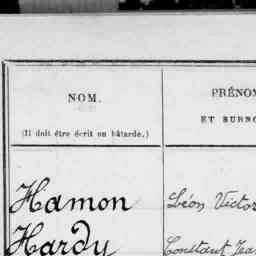 NOM.
(Il doit être écrit en bâtarde.)
PRÉNOM
ET SURNO
Hamon
Léon Victor
Hardy
Constant Jean